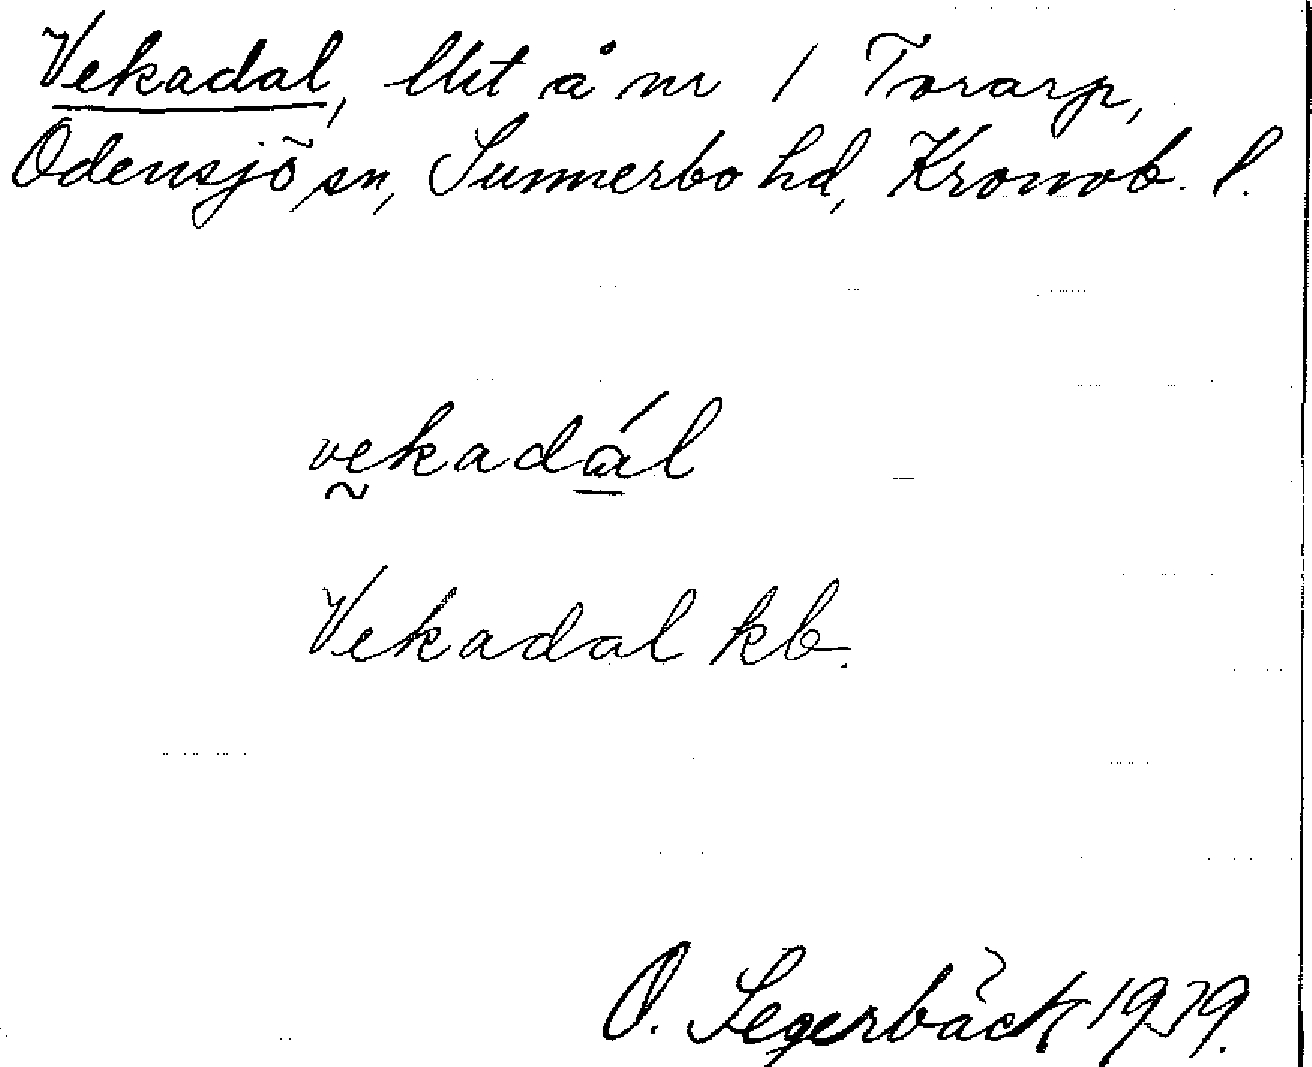 Vekadal, lht å nr 1 Torarp,
Odensjö sn, Sunnerbo hd, Kronob. l.
vekadál
Vekadal kb.
O. Segerbäck 1939.